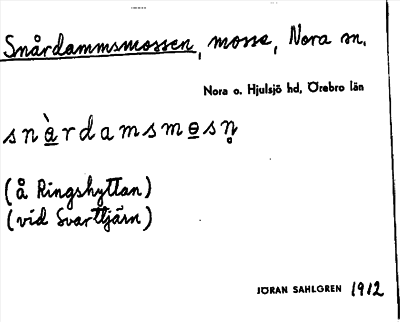 Snårdammsmossen, mosse, Nora sn.
Nora o. Hjulsjö hd, Örebro län
snàrdamsmosn̥
(å Ringshyttan)
(vid Svarttjärn)
JÖRAN SAHLGREN 1912